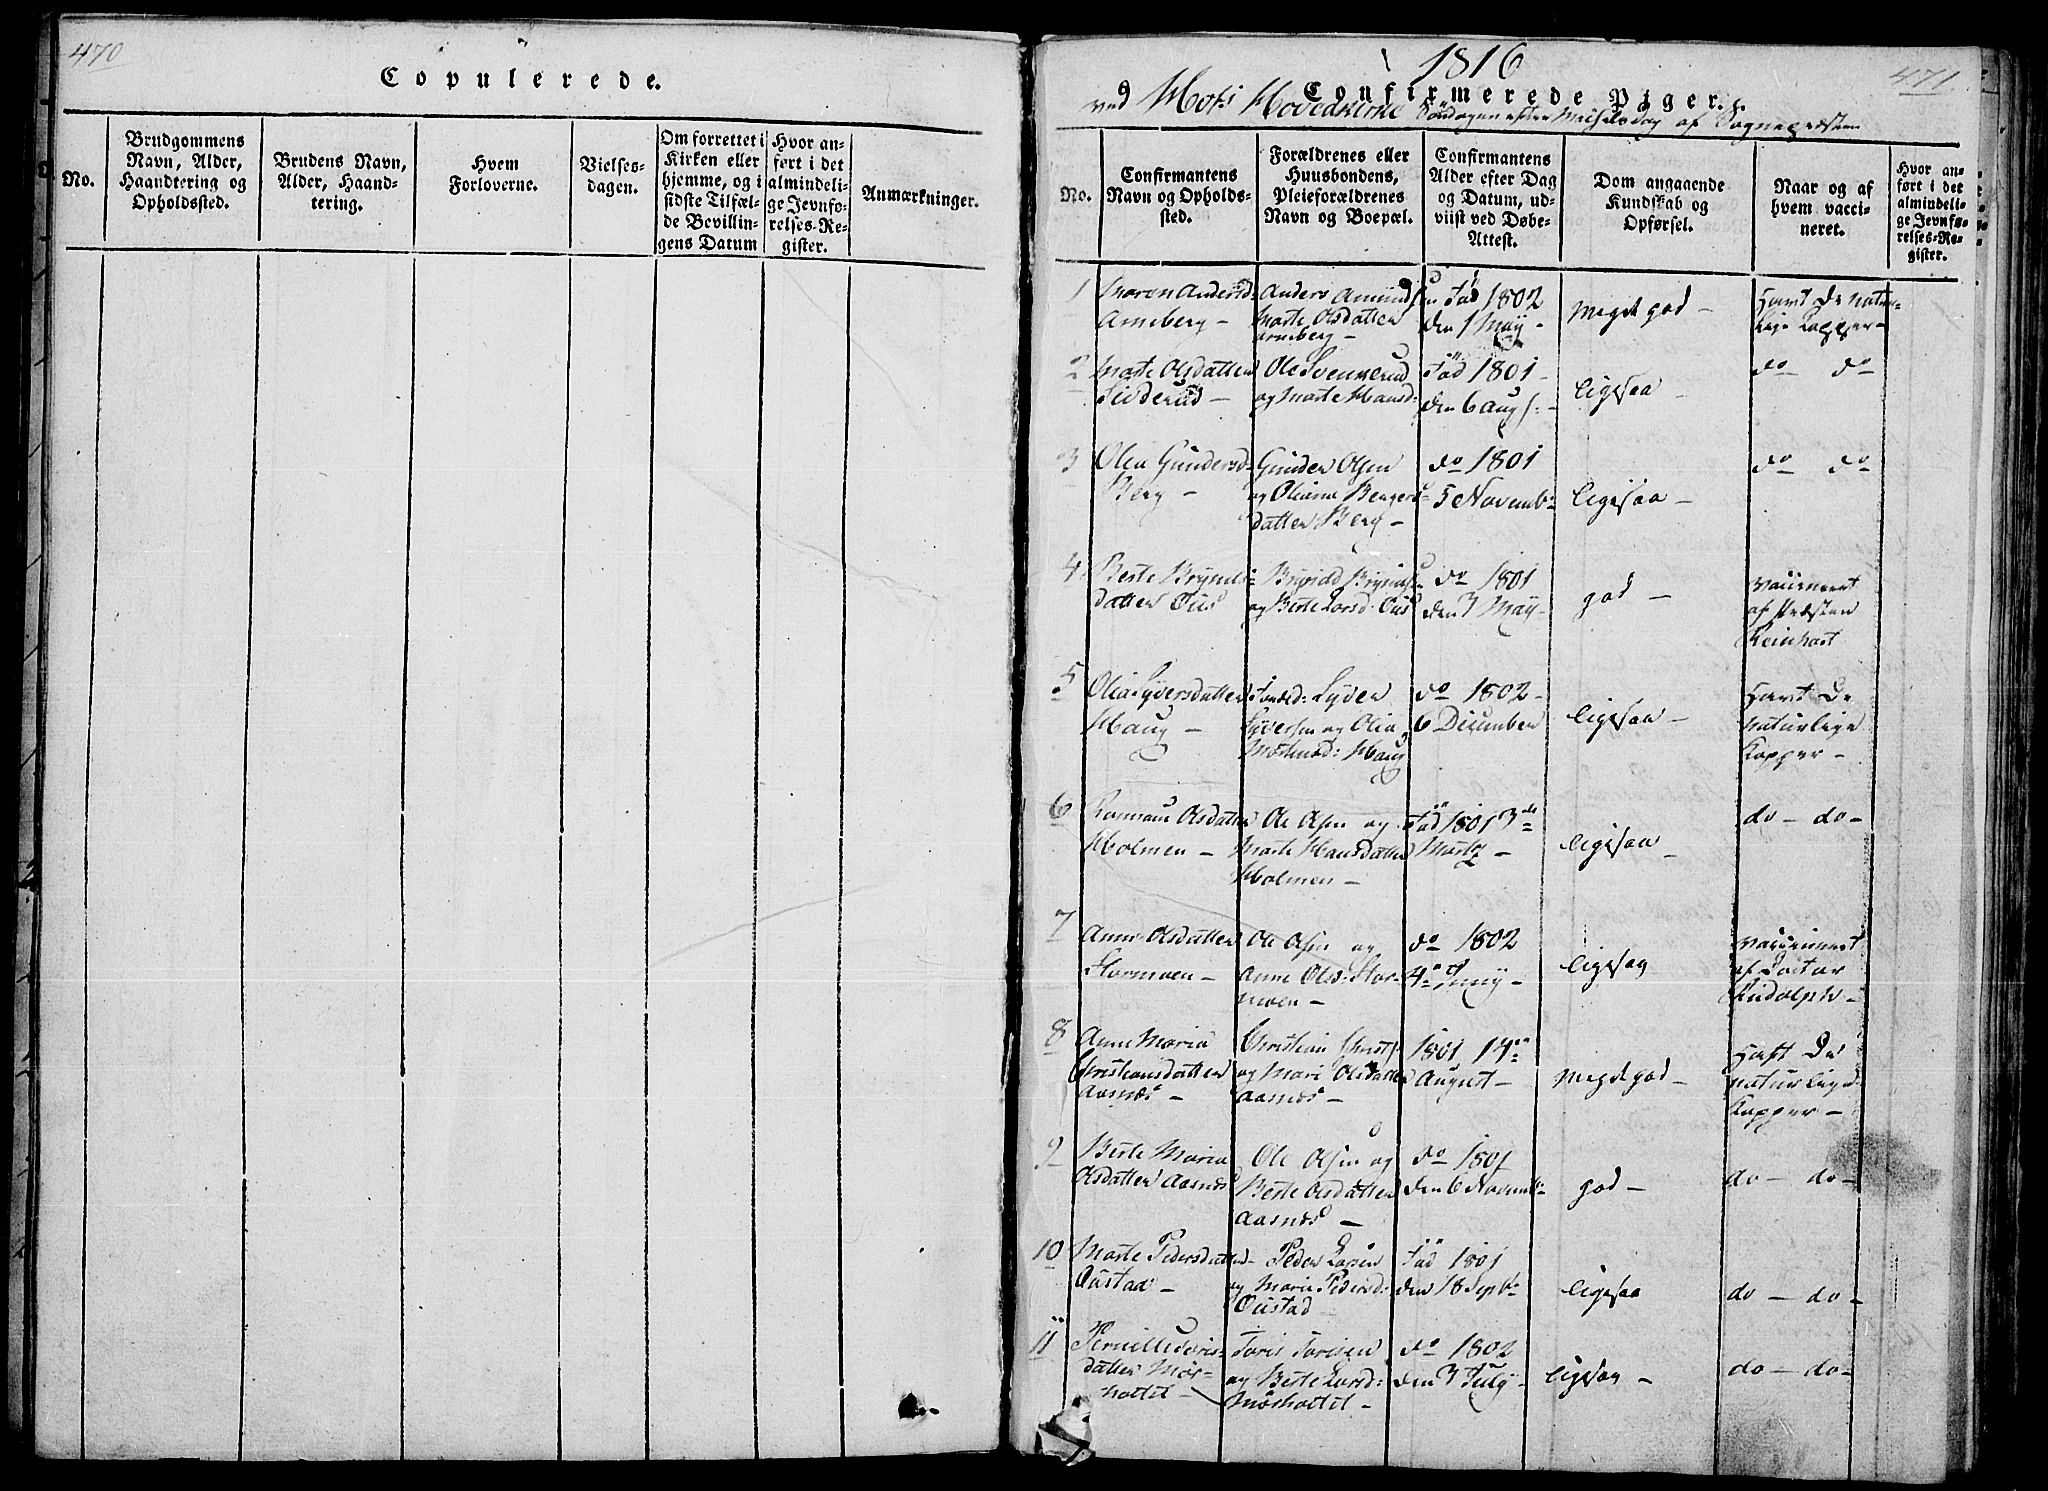 470
Copulerede.
No.
Brudgommens
Navn, Alder,
Haandtering og
Opholdssted.
Brudens Navn,
Alder, Haand-
tering.
Hvem
Forloverne.
Vielses-
dagen.
Om forrettet i
Kirken eller
hjemme, og i
sidste Tilfæl-
de Bevillin-
gens Datum
Hvor an-
ført i det
almindeli-
ge Jevnfø-
relses-Re-
gister.
Anmærkninger.
1816
471
Confirmerede Piger.
ved Hofs Hovedkirke Søndagen efter Michels Dag af Sognepræsten
No.
Confirmantens
Navn og Opholds-
sted.
Forældrenes eller
Huusbondens,
Pleieforældrenes
Navn og Boepæl.
Confirmantens
Alder efter Dag
og Datum, ud-
viist ved Døbe-
Attest.
Dom angaaende
Kundskab og
Opførsel.
Naar og af
hvem vacci-
neret.
Hvor an-
ført i det
almindeli-
ge Jevnfø-
relses-Re-
gister.
1
Maren Andersd:
Arneberg -
Anders Amund
Marte Olsdatter
Arneberg -
Fød 1802
den 1 May -
Meget god -
Havt de natur-
lige Kopper -
2
Marte Olsdatter
Ole Svenkerud
og Marte Hansd:
Fød 1801 -
den 6 Aug: -
ligesaa -
do do
3
Olea Gundersd:
Berg -
Gunder Olsen
og Oliana Bergers-
datter Berg -
do 1801
5 Novemb:
ligesaa -
do do
4
Berte Brynils-
datter Tiis
og Berte Larsd: Tiis
do 1801
den 7 May -
god -
vaccineret
af Præsten
Reinhart
5
Olia Syversdatter
Haug -
Syver
Syversen og Olia
Haug
do 1802 -
6 December
ligesaa -
Havt de
naturlige
Kopper -
6
Olsdatter
Holmen -
Ole Olsen og
Marte Hansdatter
Holmen -
Fød 1801 3de
Martz -
ligesaa -
do - do -
7
Anne Olsdatter
Stormoen -
Ole Olsen og
Anne Olsd: Stor-
moen -
do 1802
4de May -
ligesaa
vaccineret
af Doctor
Rudolph -
8
Anne Maria
Christiansdatter
Aasnæs -
Christian Christ:
og Mari Olsdatter
Aasnæs -
1801 14de
August -
Meget god -
Haft de
naturlige
Kopper -
9
Berte Maria
Olsdatter Aasnæs
Ole Olsen og
Berte Olsdatter
Aasnæs -
do 1801
den 6 Novemb:
god -
do - do -
10
Marte Pedersdatter
Oustad -
Peder Larsen
og Mari Pedersd:
Oustad
Fød 1801
den 18 Septb:
ligesaa
do - do -
11
Pernille Toris-
datter Mør-
holtet -
Toris Torisen
og Berte Larsd:
Mørholtet -
do 1802
den 3 July -
ligesaa -
do - do -